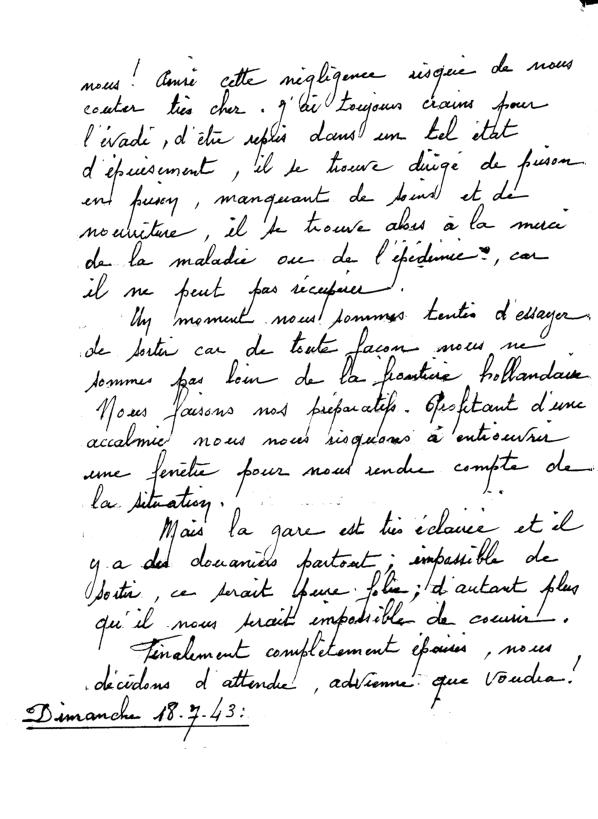 nous! Ainsi cette négligence risque de nous
couter très cher. J'ai toujours crains pour
l'évadé, d'être repris dans un tel état
d'épuisement, il se trouve dirigé de prison
en prison, manquant de soins et de
nourriture, il se trouve alors à la merci
de la maladie ou de l'épidémie, car
il ne peut pas récupérer.
Un moment nous sommes tentés d'essayer
de sortir car de toute façon nous ne
sommes pas loin de la frontière hollandaise
Nous faisons nos préparatifs. Profitant d'une
accalmie nous nous risquons à entrouvrir
une fenêtre pour nous rendre compte de
la situation.
Mais la gare est très éclairée et il
y a des douaniers partout; impossible de
sortir, ce serait pure folie; d'autant plus
qu'il nous serait impossible de courir.
Finalement complètement épuisés, nous
décidons d'attendre, advienne que voudra!
Dimanche 18.7.43: